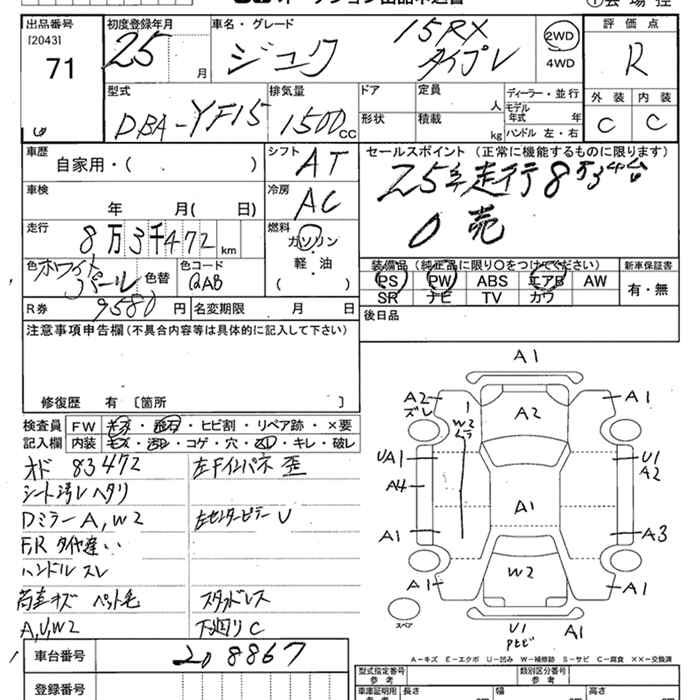 出品番号 初度登録年月 車名・グレード 15RX 2WD 評価点
[2043] 25 月 ジューク タイプV 4WD R
71
型式 排気量 ドア 定員 人 ディーラー・並行 外装 内装
DBA-YF15 1500cc 形状 積載 kg モデル年式 年 ハンドル 左・右 C C
車歴 シフト セールスポイント (正常に機能するものに限ります)
自家用・( ) AT 25年走行8万3千台
車検 冷房 0 売
年 月( 日) AC
走行 燃料
8万3千472km ガソリン
色 ホワイトパール 色替 色コード QAB 軽・油
( )
装備品 (純正品に限り○をつけてください) 新車保証書
PS PW ABS エアB AW 有・無
SR ナビ TV カワ
R券 9580円 名変期限 月 日 後日品
注意事項申告欄 (不具合内容等は具体的に記入して下さい)
修復歴 有 [箇所 ]
検査員 FW キズ・飛石・ヒビ割・リペア跡・×要
記入欄 内装 キズ・汚レ・コゲ・穴・・キレ・破レ
オド 83472 左Fインパネ 歪
シート汚レ ヘタリ
DミラーA,W2 左センターピラーU
F,R タイヤ違い
ハンドル スレ
荷室キズ ペット毛 スタッドレス
A,U,W2 下廻りC
車台番号 208867
登録番号
A1
A2 ズレ A2 A1
W2 ムラ
UA1 U1 A2
A4 A1
A1 A3
A1 W2 A1
スペア
U1 Pセビ A1
A-キズ E-エクボ U-凹み W-補修跡 S-サビ C-腐食 ××-交換済
型式指定番号 参考 類別区分番号 参考
車庫証明用 参考 長さ 幅 高さ